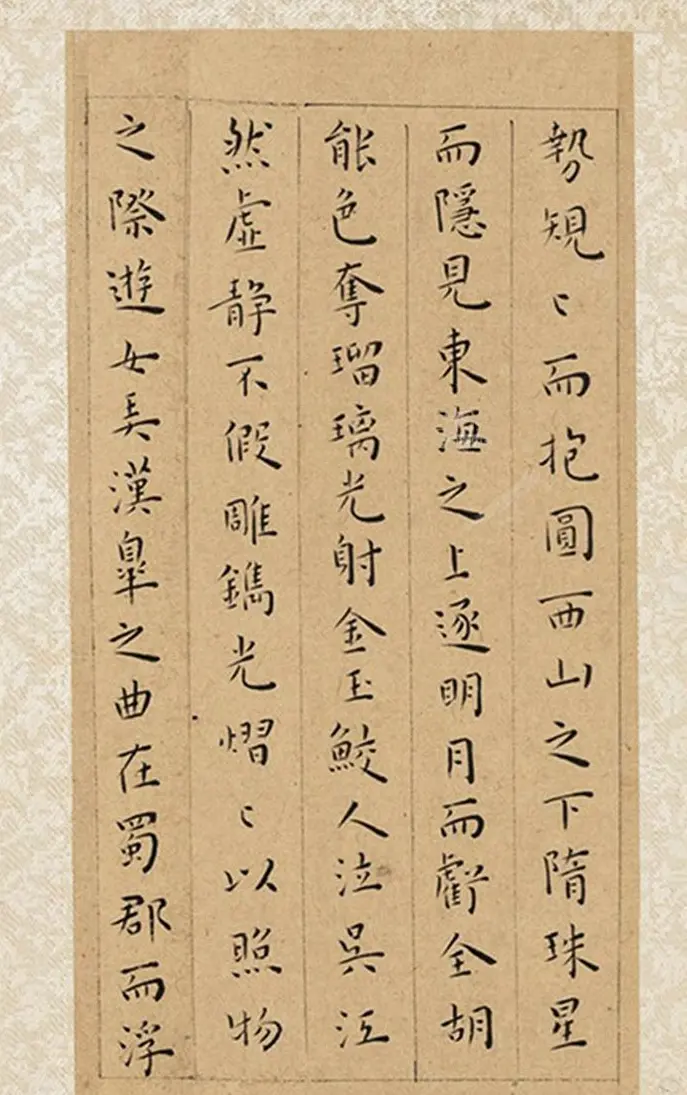 勢規〻而抱圓西山之下隋珠星
而隱見東海之上逐明月而虧全胡
能色奪瑠璃光射金玉鮫人泣吳江
然虛静不假雕鐫光熠〻以照物
之際遊女弄漢皐之曲在蜀郡而浮